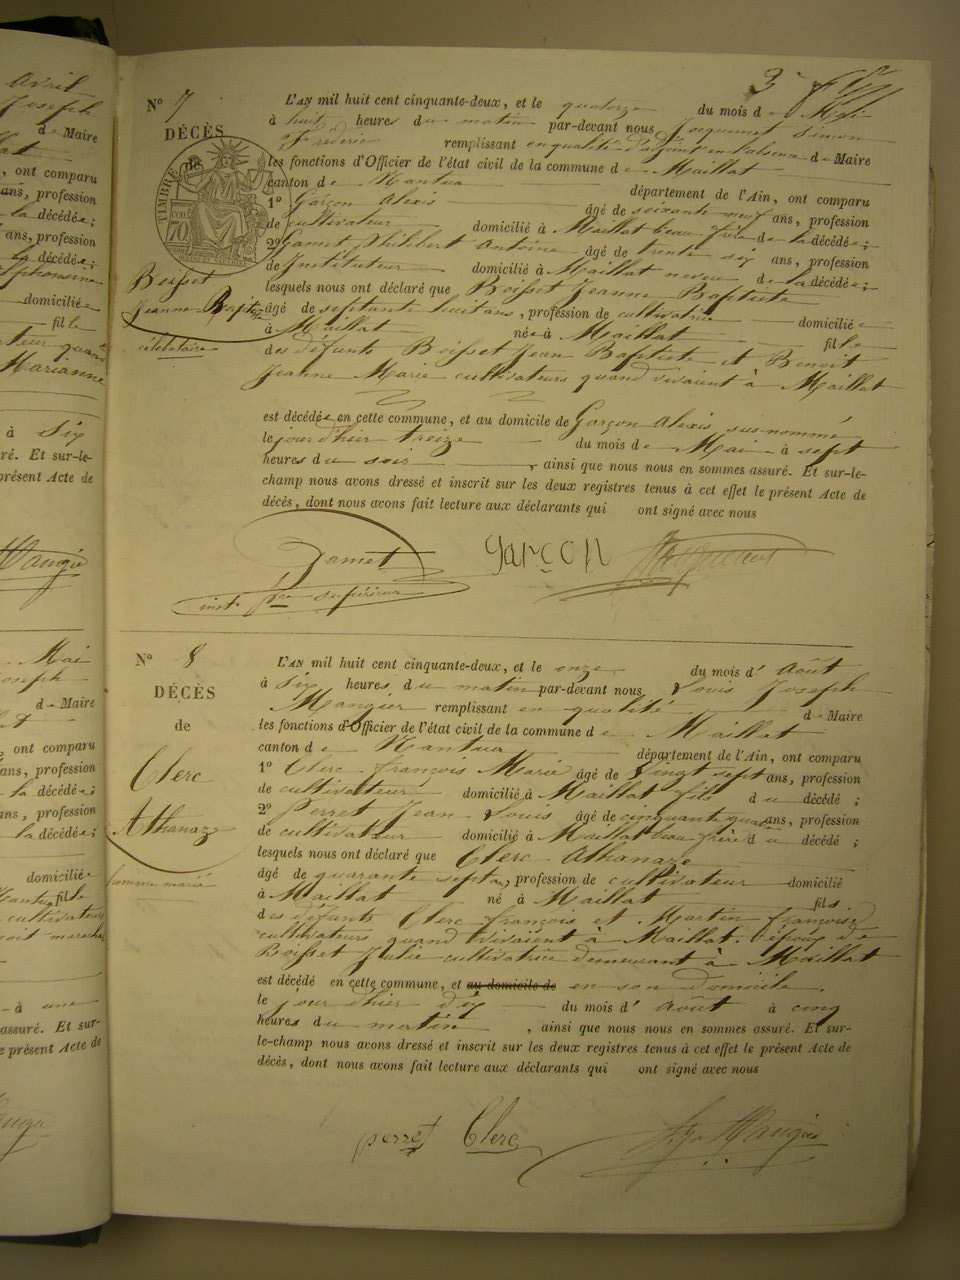 avril
Joseph
de Maire
ont comparu
ans, profession
la décédée;
ans, profession
la décédée;
domiciliée
fille
Marianne
à six
Et sur-le-
présent Acte de
Maugié
Mai
Joseph
de Maire
, ont comparu
ans, profession
la décédée;
ans, profession
la décédée;
domiciliée
fille
cultivateurs
à une
assuré. Et sur-
le présent Acte de
3e
N° 7
DÉCÈS
de
TIMBRE
70
Boisset
Jeanne Bapte
célebataire
L'AN mil huit cent cinquante-deux, et le quatorze du mois de Mai
à huit heures du matin par-devant nous Jacquemet Simon
Fréderic remplissant en qualité d'adjoint en l'absence de Maire
les fonctions d'Officier de l'état civil de la commune de Maillat
canton de Nantua département de l'Ain, ont comparu
1° Garçon Alexis âgé de soixante neuf ans, profession
de cultivateur domicilié à Maillat beau frère de la décédée;
2° Gamet Philibert Antoine âgé de trente six ans, profession
de Instituteur domicilié à Maillat neveu de la décédée;
lesquels nous ont déclaré que Boisset Jeanne Baptiste
âgé de septante huit ans, profession de cultivatrice domiciliée
à Maillat née à Maillat fille
des défunts Boisset Jean Baptiste et Benoit
Jeanne Marie cultivateurs quand vivaient à Maillat
est décédée en cette commune, et au domicile de Garçon Alexis sus-nommé
le jour d'hier treize du mois de Mai à sept
heures du soir, ainsi que nous nous en sommes assuré. Et sur-le-
champ nous avons dressé et inscrit sur les deux registres tenus à cet effet le présent Acte de
décès, dont nous avons fait lecture aux déclarants qui ont signé avec nous
Gamet Garçon
inst. pre supérieur
N° 8
DÉCÈS
de
Clerc
Athanaze
homme marié
L'AN mil huit cent cinquante-deux, et le onze du mois d' Août
à six heures du matin par-devant nous Louis Joseph
Maugier remplissant en qualité de Maire
les fonctions d'Officier de l'état civil de la commune de Maillat
canton de Nantua département de l'Ain, ont comparu
1° Clerc françois Marie âgé de Vingt sept ans, profession
de cultivateur domicilié à Maillat fils du décédé ;
2° Perret Jean Louis âgé de cinquante quatre ans, profession
de cultivateur domicilié à Maillat beau frère du décédé ;
lesquels nous ont déclaré que Clerc Athanaze
âgé de quarante sept ans, profession de cultivateur domicilié
à Maillat né à Maillat fils
des défunts Clerc françois et Martin françoise
cultivateurs quand vivaient à Maillat. Epoux de
Boisset Julie cultivatrice demeurant à Maillat
est décédé en cette commune, et au domicile de en son domicile
le jour d'hier dix du mois d' Août à cinq
heures du matin, ainsi que nous nous en sommes assuré. Et sur-
le-champ nous avons dressé et inscrit sur les deux registres tenus à cet effet le présent Acte de
décès, dont nous avons fait lecture aux déclarants qui ont signé avec nous
perret Clerc Maugié